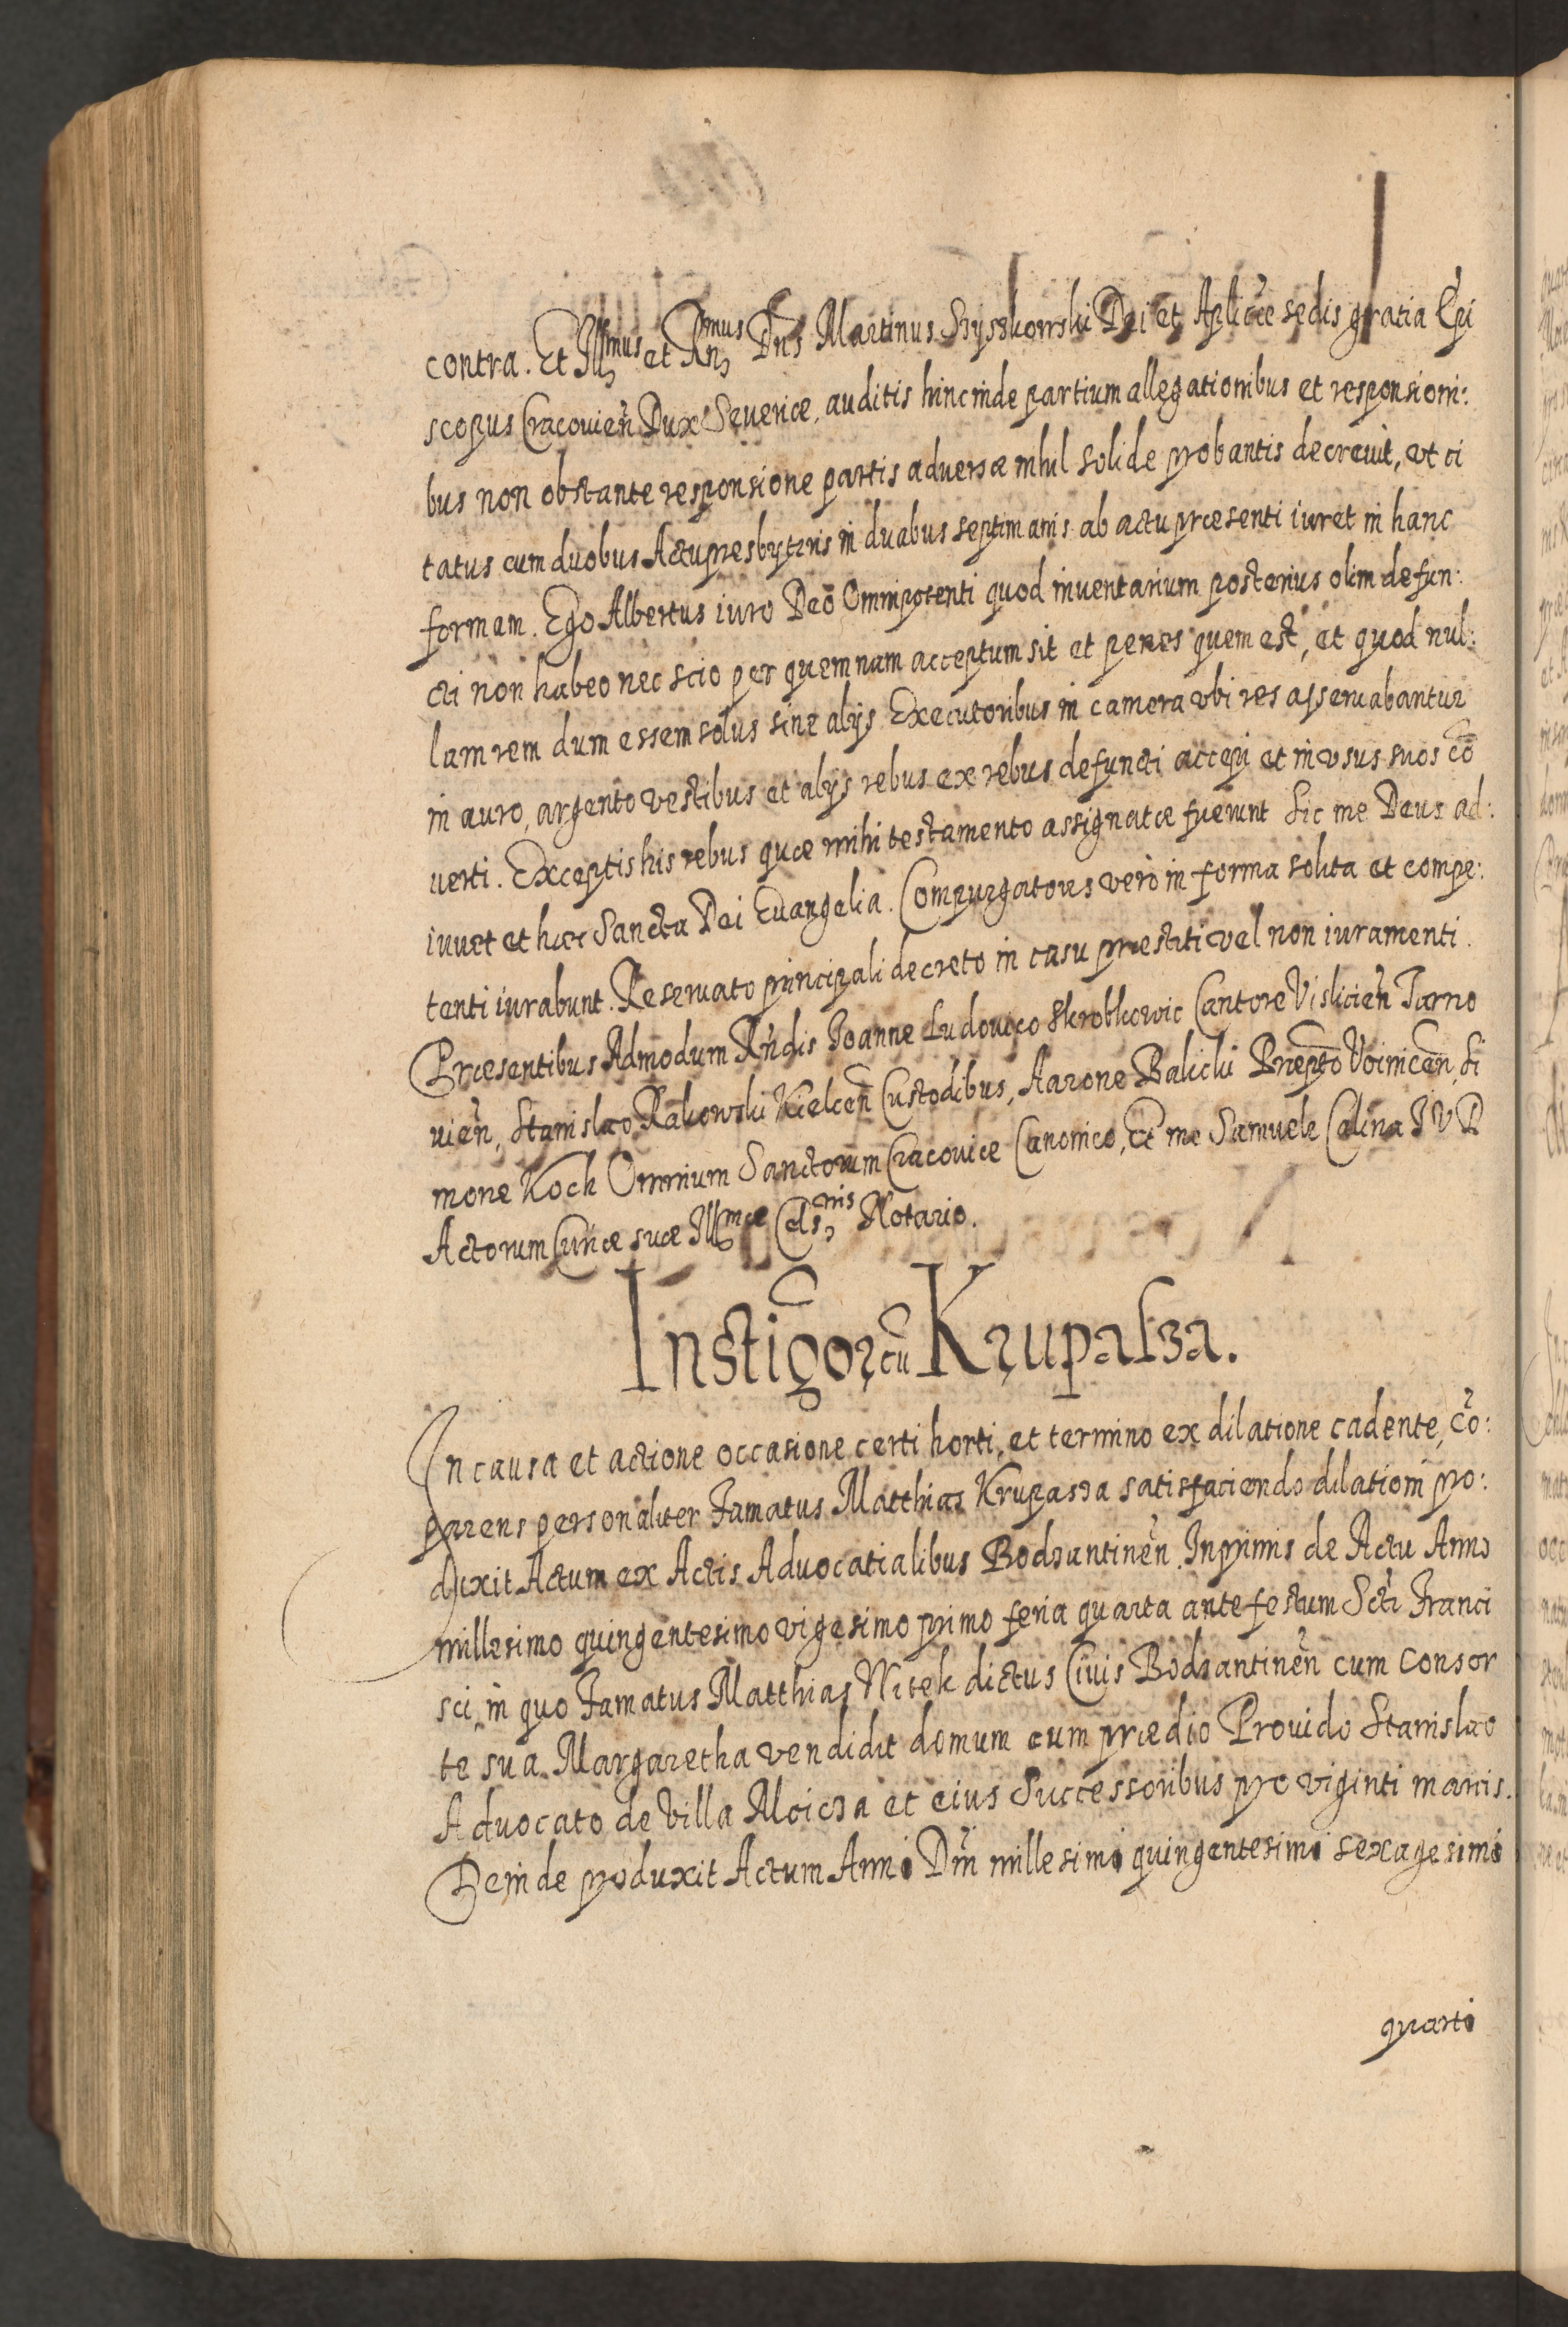 contra. Et Illmus et Rnmus Dns Martinus Szyszkowski Dei et Aplicæ sedis gratia Epi
scopus Cracovien Dux Severiæ, auditis hinc inde partium allegationibus et responsioni:
bus non obstante responsione partis adversæ nihil solide probantis decrevit, ut ci
tatus cum duobus Actupresbyteris in duabus septimanis ab actu præsenti iuret in hanc
formam. Ego Albertus iuro Deo Omnipotenti quod inventarium posterius olim defun:
cti non habeo nec scio per quemnam acceptum sit et penes quem est, et quod nul:
lam rem dum essem solus sine alijs Executoribus in camera ubi res asservabantur
in auro, argento vestibus et alijs rebus ex rebus defuncti accepi et in usus suos cō
verti. Exceptis his rebus quæ mihi testamento assignatæ fuerunt Sic me Deus ad:
iuvet et hæc Sancta Dei Evangelia. Compurgatores verò in forma solita et compe:
tenti iurabunt. Reservato principali decreto in casu præstiti vel non iuramenti.
Præsentibus Admodum Rndis Joanne Ludovico Skrobkowic Cantore Vislicien Tarno
vien, Stanislao Rakowski Kielcen Custodibus, Aarone Balicki Præpto Voinicen, Si
mone Koch Omnium Sanctorum Cracoviæ Canonico, Et me Samuele Calina I V D
Actorum Curiæ suæ Illmæ Cels.nis Notario.
Instigor cū Krupasza.
In causa et actione occasione certi horti, et termino ex dilatione cadente, cō:
parens personaliter Famatus Matthias Krupasza satisfaciendo dilationi pro:
duxit Actum ex Actis Advocatialibus Bodzantinen. Inprimis de Actu Anno
millesimo quingentesimo vigesimo primo feria quarta ante festum Scti Franci
sci, in quo Famatus Matthias Witek dictus Civis Bodzantinen cum Consor
te sua Margaretha vendidit domum cum prædio Provido Stanislao
Advocato de Villa Moicza et eius Successoribus pro viginti marcis.
Deinde produxit Actum Anni Dni millesimi quingentesimi sexagesimi
quarti